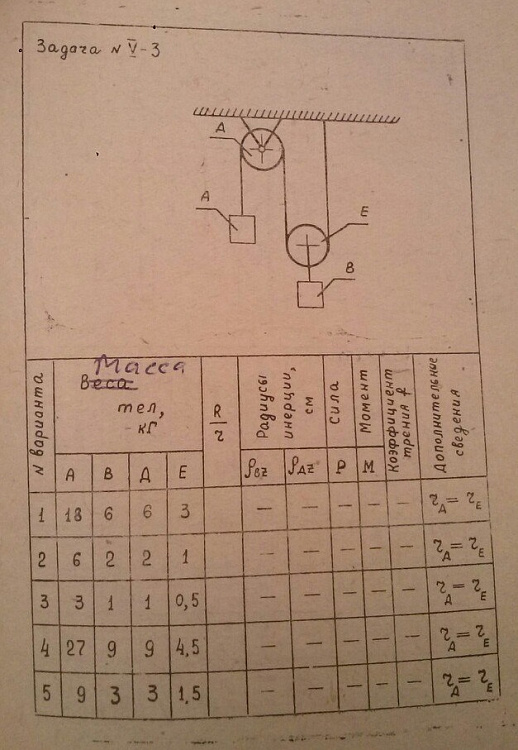 Задача N V-3
А
А
Е
В
N варианта
Масса
Веса
тел,
кГ
R
r
Радиусы
инерции,
см
Сила
Момент
Коэффициент
трения f
Дополнительное
сведения
А В Д Е ρBZ ρДZ Р М
1 18 6 6 3 — — — — — τД = τЕ
2 6 2 2 1 — — — — — τД = τЕ
3 3 1 1 0,5 — — — — — τД = τЕ
4 27 9 9 4,5 — — — — — τД = τЕ
5 9 3 3 1,5 — — — — — τД = τЕ